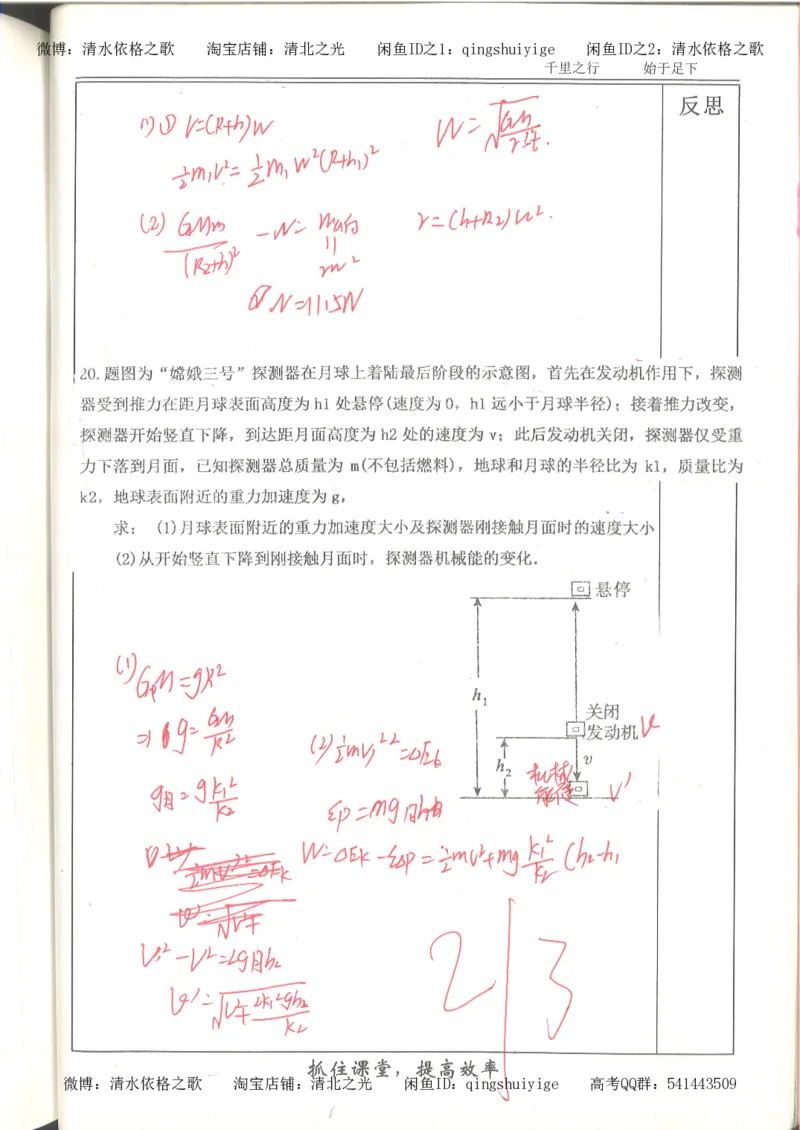 微博：清水依格之歌 淘宝店铺：清北之光 闲鱼ID之1：qingshuiyige 闲鱼ID之2：清水依格之歌
千里之行 始于足下
反思
V=(R+h)W
½m₁V²=½m₁W²(R+h₁)²
(2) GMm/(R₂+h)² -N=ma向
N=1115N
20.题图为“嫦娥三号”探测器在月球上着陆最后阶段的示意图，首先在发动机作用下，探测
器受到推力在距月球表面高度为 h1 处悬停(速度为 0，h1 远小于月球半径)；接着推力改变，
探测器开始竖直下降，到达距月面高度为 h2 处的速度为 v；此后发动机关闭，探测器仅受重
力下落到月面，已知探测器总质量为 m(不包括燃料)，地球和月球的半径比为 k1，质量比为
k2，地球表面附近的重力加速度为 g，
求：(1)月球表面附近的重力加速度大小及探测器刚接触月面时的速度大小
(2)从开始竖直下降到刚接触月面时，探测器机械能的变化．
悬停
h₁
关闭
发动机 v
h₂
v
机械
v'
(1)
g=GM/R²
g月=g k₁²/k₂
W=ΔEk-Ep=½mv²+mg k₁²/k₂ (h₂-h₁
-V²=2g月h₂
2/3
抓住课堂，提高效率
微博：清水依格之歌 淘宝店铺：清北之光 闲鱼ID：qingshuiyige 高考QQ群：541443509